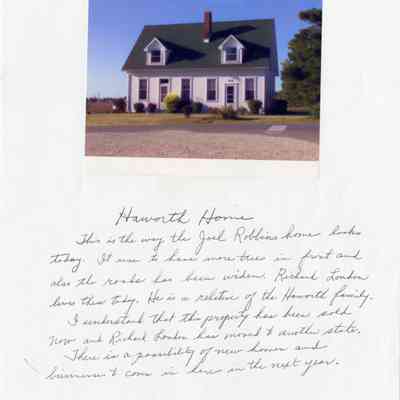 Haworth Home
This is the way the Joel Robbins home looks
today. It use to have more trees in front and
also the roads has been widen. Richard London
lives there today. He is a relative of the Haworth family.
I understand that the property has been sold
now and Richard London has moved to another state.
There is a possibility of new homes and
business to come in here in the next year.